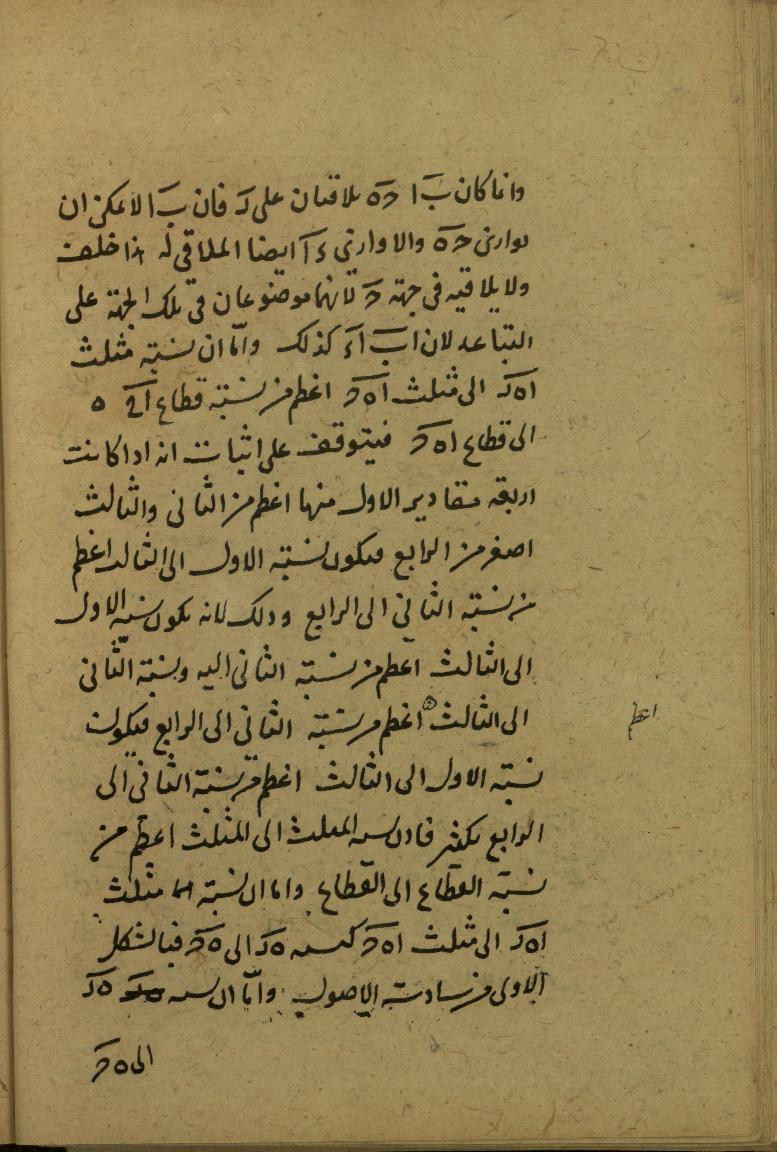 وانما كان بَ ا حَ ه يلاقيان على دَ فان بَ ا لا يمكن ان
يوازى حَ ه والا لوازى ءَ ا ايضا الملاقى له هذا خلف
ولا يلاقيه فى جهة حَ لانهما موضوعان فى تلك الجهة على
التباعد لان ا بَ ا ءَ كذلك واما ان نسبة مثلث
ا ه دَ الى مثلث ا ه حَ اعظم من نسبة قطاع ا حَ ه
الى قطاع ا ه حَ فيتوقف على اثبات انه اذا كانت
اربعة مقادير الاول منها اعظم من الثانى والثالث
اصغر من الرابع فيكون نسبة الاول الى الثالث اعظم
من نسبة الثانى الى الرابع وذلك لانه يكون نسبة الاول
الى الثالث اعظم من نسبة الثانى اليه ونسبة الثانى
الى الثالث اعظم من نسبة الثانى الى الرابع فيكون
اعظم
نسبة الاول الى الثالث اعظم من نسبة الثانى الى
الرابع بكثير فاذن نسبة المثلث الى المثلث اعظم من
نسبة القطاع الى القطاع واما ان نسبة مثلث
ا ه دَ الى مثلث ا ه حَ كنسبة ه دَ الى ه حَ فبالشكل
الاول من سادسة الاصول واما ان نسبة ه دَ
الى ه حَ